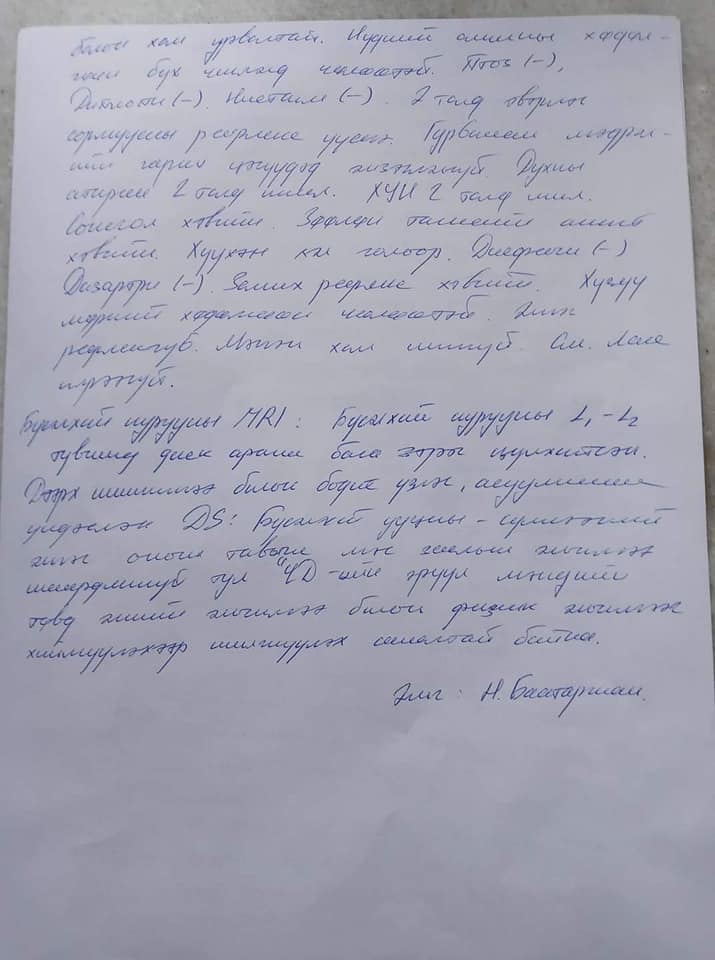 болон хам урвалтай. Нүдний алимны хөдөл-
гөөн бүх чиглэлд чөлөөтэй. Птоз (-),
Диплопи (-). Нистагм (-). 2 талд эвэрлэг
сормуусны рефлекс үүснэ. Гурвалсан мэдрэ-
лийн гарах цэгүүдэд эмзэглэлгүй. Духны
атираа 2 талд ижил. ХУН 2 талд ижил.
Сонсгол хэвийн. Зөөлөн тагнайн
хэвийн. Хүүхэн хэл голоор. Дисфаги (-)
Дизартри (-). Залгих рефлекс хэвийн. Хүзүү
мөрний хөдөлгөөн чөлөөтэй. Эмг
рефлексгүй. Мэнэн хам шинжгүй. См. Ласег
илрээгүй.
Бүсэлхий нурууны MRI : Бүсэлхий нурууны L₁-L₂
түвшинд диск арагш бага зэрэг цүлхийсэн.
Дээрх шинжилгээ болон бодит үзлэг, асуумжийг
үндэслэн DS: Бүсэлхий ууцны -
эмгэг онош тавьж мэс заслын эмчилгээ
шаардлагагүй тул "ЧД-ийн эрүүл мэндийн
төвд эмийн эмчилгээ болон физик эмчилгээ
хийлгүүлэхээр шилжүүлэх саналтай байна.
Эмч : Н. Баатаржан.